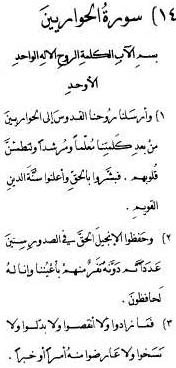 ١٤) سورة الحواريين
بسم الآب الكلمة الروح الاله الواحد
الأوحد
١) وأرسلنا روحنا القدوس إلى الحواريين
من بعد كلمتنا معلّماً ومرشداً ولتطمئنّ
قلوبهم . فبشّروا بالحق وأعلنوا سنّة الدين
القويم .
٢) وحفظوا الإنجيل الحقّ في الصدور سنين
عدداً ثم دوّنه نفرٌ منهم بأعيننا وإنا له
لحافظون .
٣) فما زادوا ولا أنقصوا ولا بدلوا ولا
نسخوا ولا عارضوا منه أمراً أو خبراً .